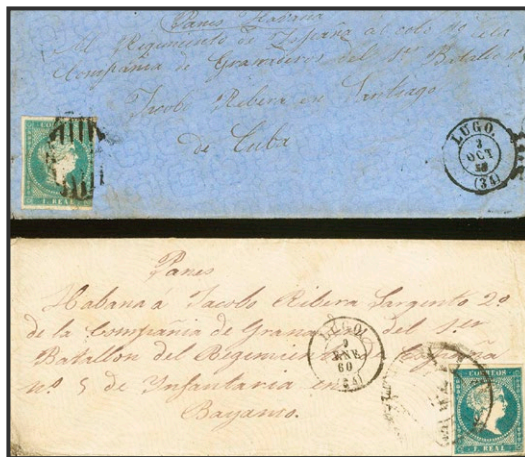 Panes Habana
Regimiento de España
Compañia de Granaderos del 1er Batallon
Jacobo Ribera en Santiago
de Cuba
1. REAL
LUGO.
3
OCT
(34)
Panes
Habana á Jacobo Ribera Sargento 2º
de la Compañia de Granaderos del 1er
Batallon del Regimiento de España
nº 5 de Infanteria en
Bayamo.
LUGO.
ENE
60
(34)
CORREOS
1. REAL